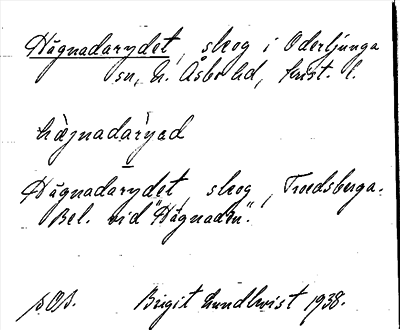 Hägnadarydet, skog i Oderljunga
sn, N. Åsbo hd, Krist. l.
hä̀jnadarẏad
Hägnadarydet, skog, Troedsberga.
Bel. vid "Hägnaden".
pOB. Birgit Lundkvist 1938.